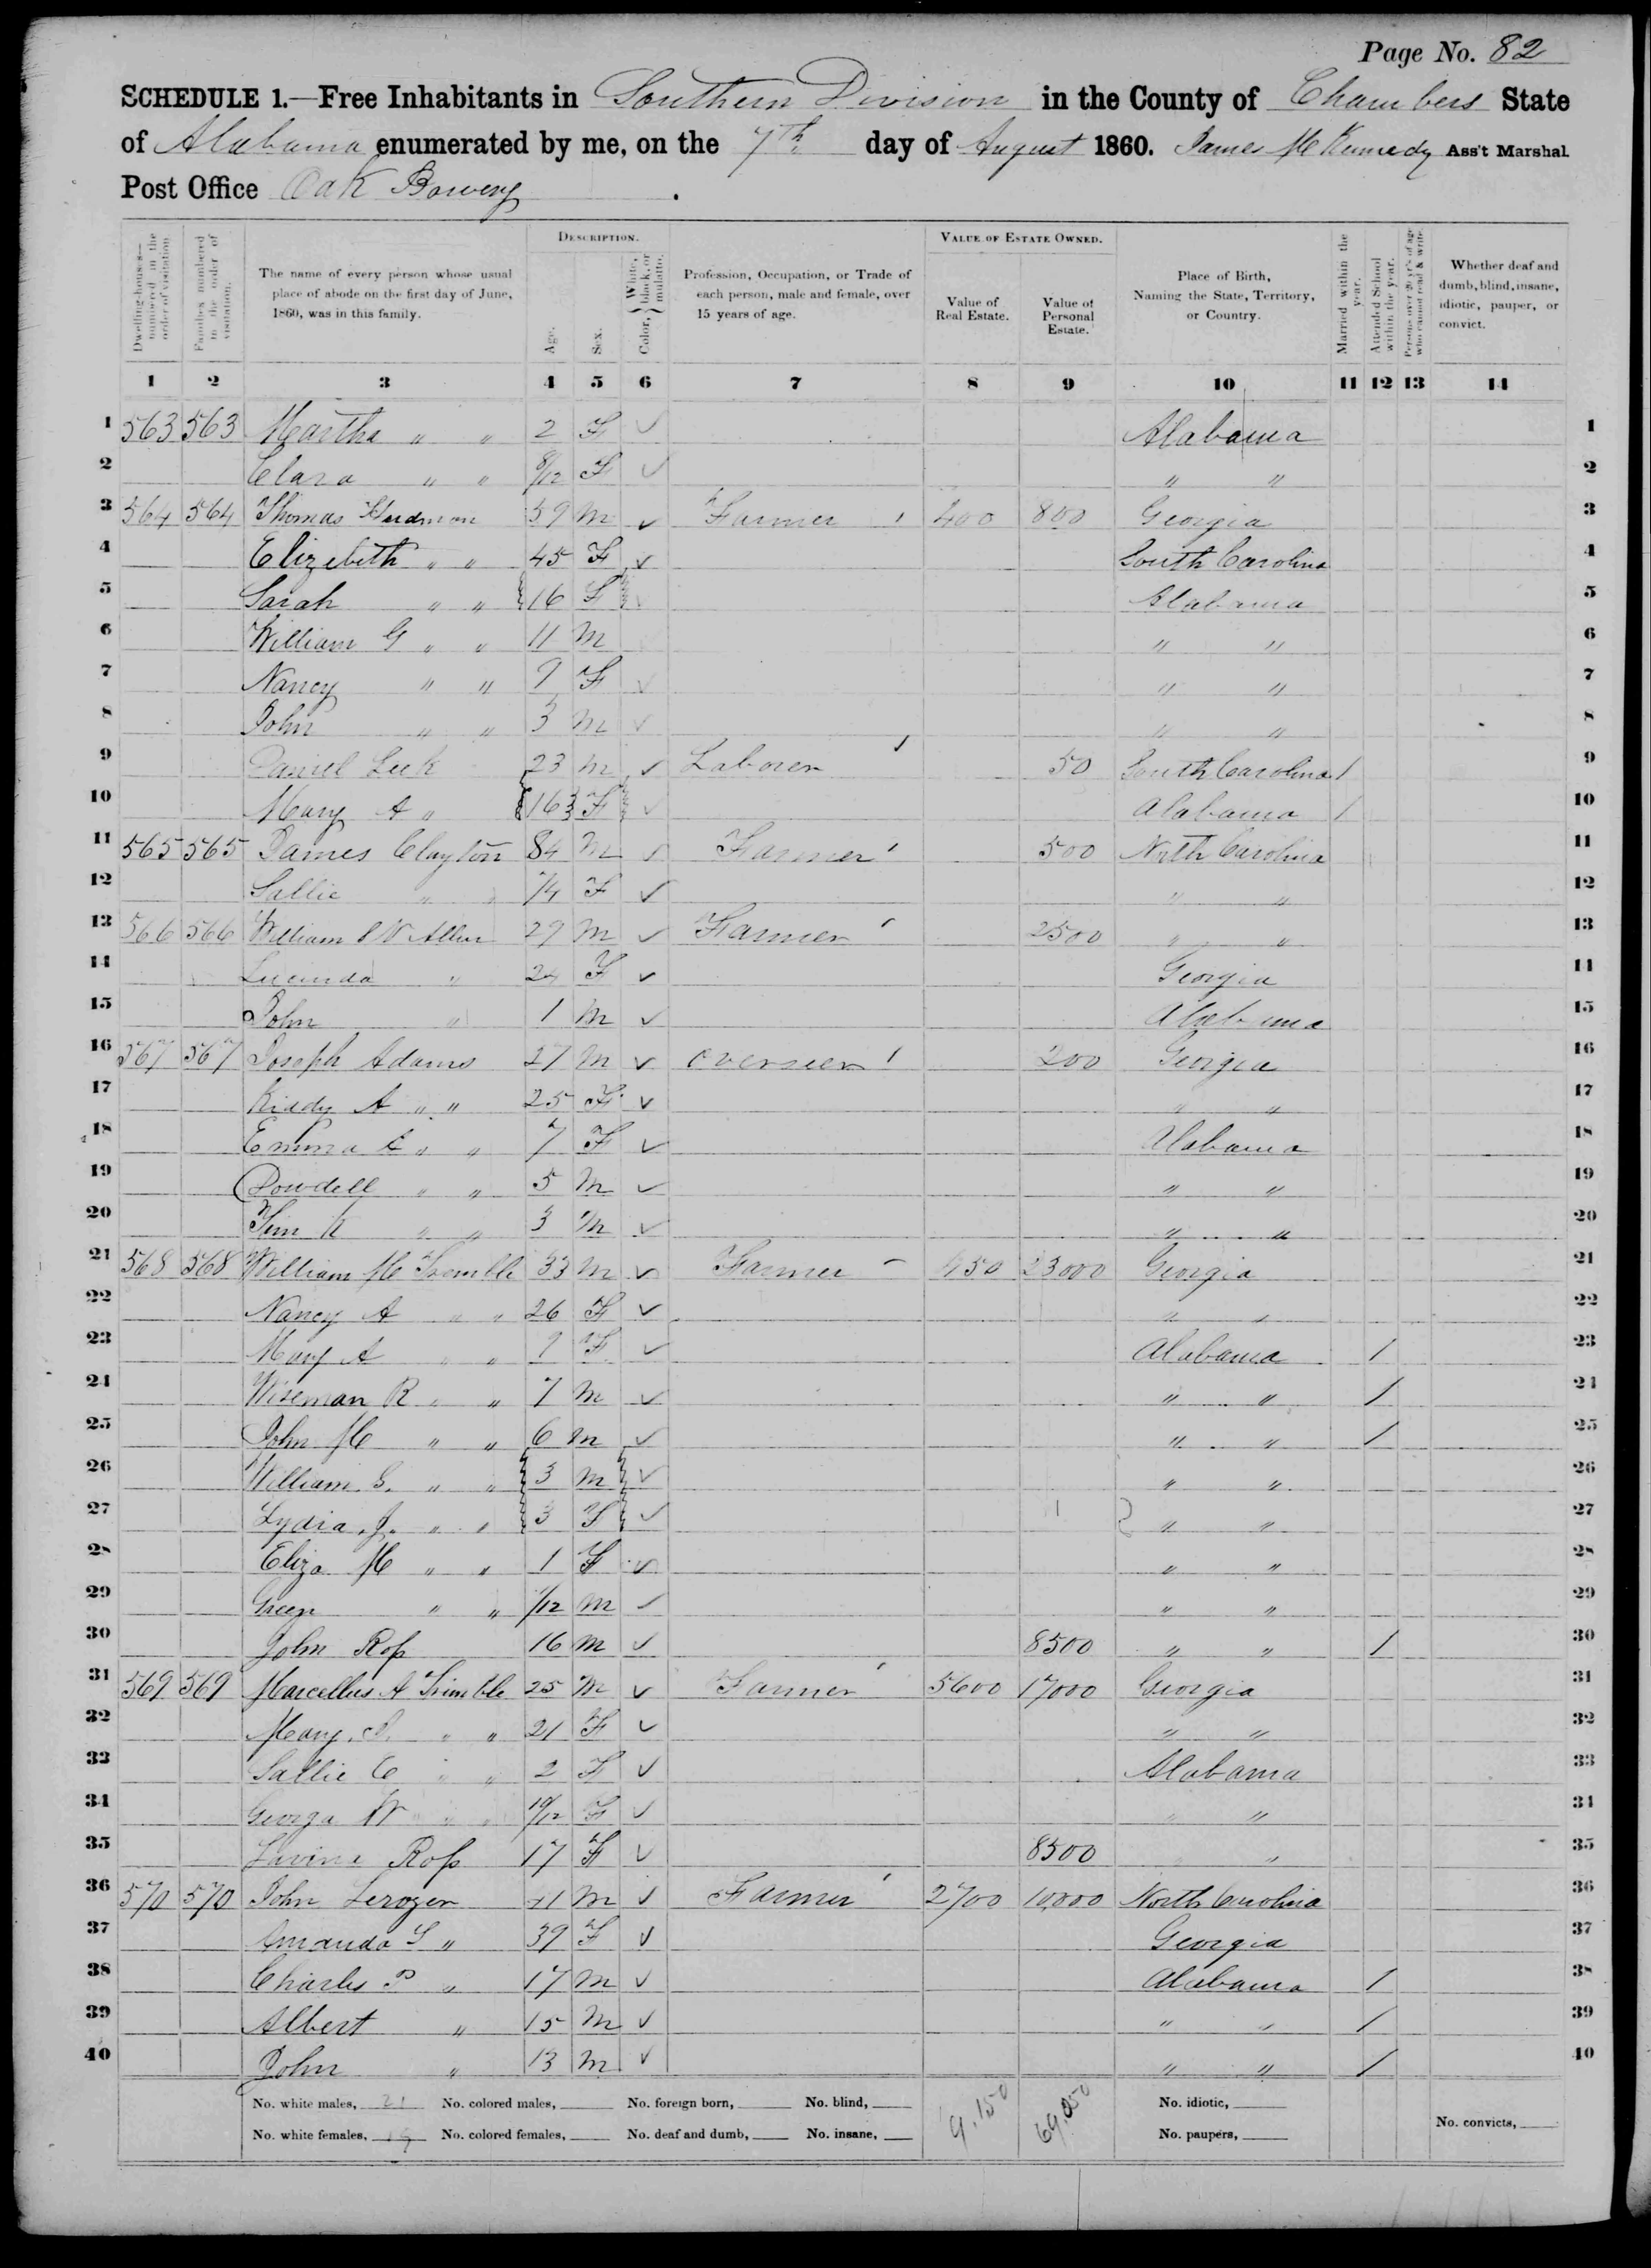 Page No. 82
SCHEDULE 1.—Free Inhabitants in Southern Division in the County of Chambers State
of Alabama enumerated by me, on the 7th day of August 1860. James M Kennedy Ass't Marshal
Post Office Oak Bowery .
Dwelling-houses—numbered in the order of visitation
Families numbered in the order of visitation.
The name of every person whose usual place of abode on the first day of June, 1860, was in this family.
DESCRIPTION.
Age.
Sex.
Color, { White, black, or mulatto.
Profession, Occupation, or Trade of each person, male and female, over 15 years of age.
VALUE OF ESTATE OWNED.
Value of Real Estate.
Value of Personal Estate.
Place of Birth, Naming the State, Territory, or Country.
Married within the year.
Attended School within the year.
Persons over 20 yr's of age who cannot read & write.
Whether deaf and dumb, blind, insane, idiotic, pauper, or convict.
1 2 3 4 5 6 7 8 9 10 11 12 13 14
1 563 563 Martha " " 2 F ✓ Alabama 1
2 Clara " " 8/12 F ✓ " " 2
3 564 564 Thomas 59 M ✓ Farmer 400 800 Georgia 3
4 Elizebeth " " 45 F ✓ South Carolina 4
5 Sarah " " 16 F ✓ Alabama 5
6 William G " " 11 M " " 6
7 Nancy " " 9 F ✓ " " 7
8 John " " 3 M ✓ " " 8
9 Daniel Leek 23 M ✓ Laborer 50 South Carolina / 9
10 Mary A " 16 F ✓ Alabama / 10
11 565 565 James Clayton 84 M ✓ Farmer 500 North Carolina 11
12 Sallie " " 74 F ✓ " " 12
13 566 566 William Allen 29 M ✓ Farmer 2500 " " 13
14 Lucinda " 24 F ✓ Georgia 14
15 John " 1 M ✓ Alabama 15
16 567 567 Joseph Adams 27 M ✓ Overseer 200 Georgia 16
17 Kiddy A " " 25 F ✓ " " 17
18 Emma " " 7 F ✓ Alabama 18
19 Dowdell " " 5 M ✓ " " 19
20 " " 3 M ✓ " " 20
21 568 568 William M Tremble 33 M ✓ Farmer 450 23000 Georgia 21
22 Nancy A " " 26 F ✓ " " 22
23 Mary A " " 9 F ✓ Alabama / 23
24 Wiseman R " " 7 M ✓ " " / 24
25 John M " " 6 M ✓ " " / 25
26 William S. " " 3 M ✓ " " 26
27 Lydia J. " " 3 F ✓ " " 27
28 Eliza M " " 1 F ✓ " " 28
29 Green " " 1/12 M ✓ " " 29
30 John Ross 16 M ✓ 8500 " " / 30
31 569 569 Marcellus A Trimble 25 M ✓ Farmer 5600 17000 Georgia 31
32 Mary " " 21 F ✓ " " 32
33 Sallie E " " 2 F ✓ Alabama 33
34 Georga W " " 10/12 F ✓ " " 34
35 Lavina Ross 17 F ✓ 8500 " 35
36 570 570 John 41 M ✓ Farmer 2700 10,000 North Carolina 36
37 Amanda S " 39 F ✓ Georgia 37
38 Charles P " 17 M ✓ Alabama / 38
39 Albert " 15 M ✓ " " / 39
40 John " 13 M ✓ " " / 40
No. white males, 21 No. colored males, No. foreign born, No. blind, 9,150 69,050 No. idiotic,
No. white females, 19 No. colored females, No. deaf and dumb, No. insane, No. paupers, No. convicts,